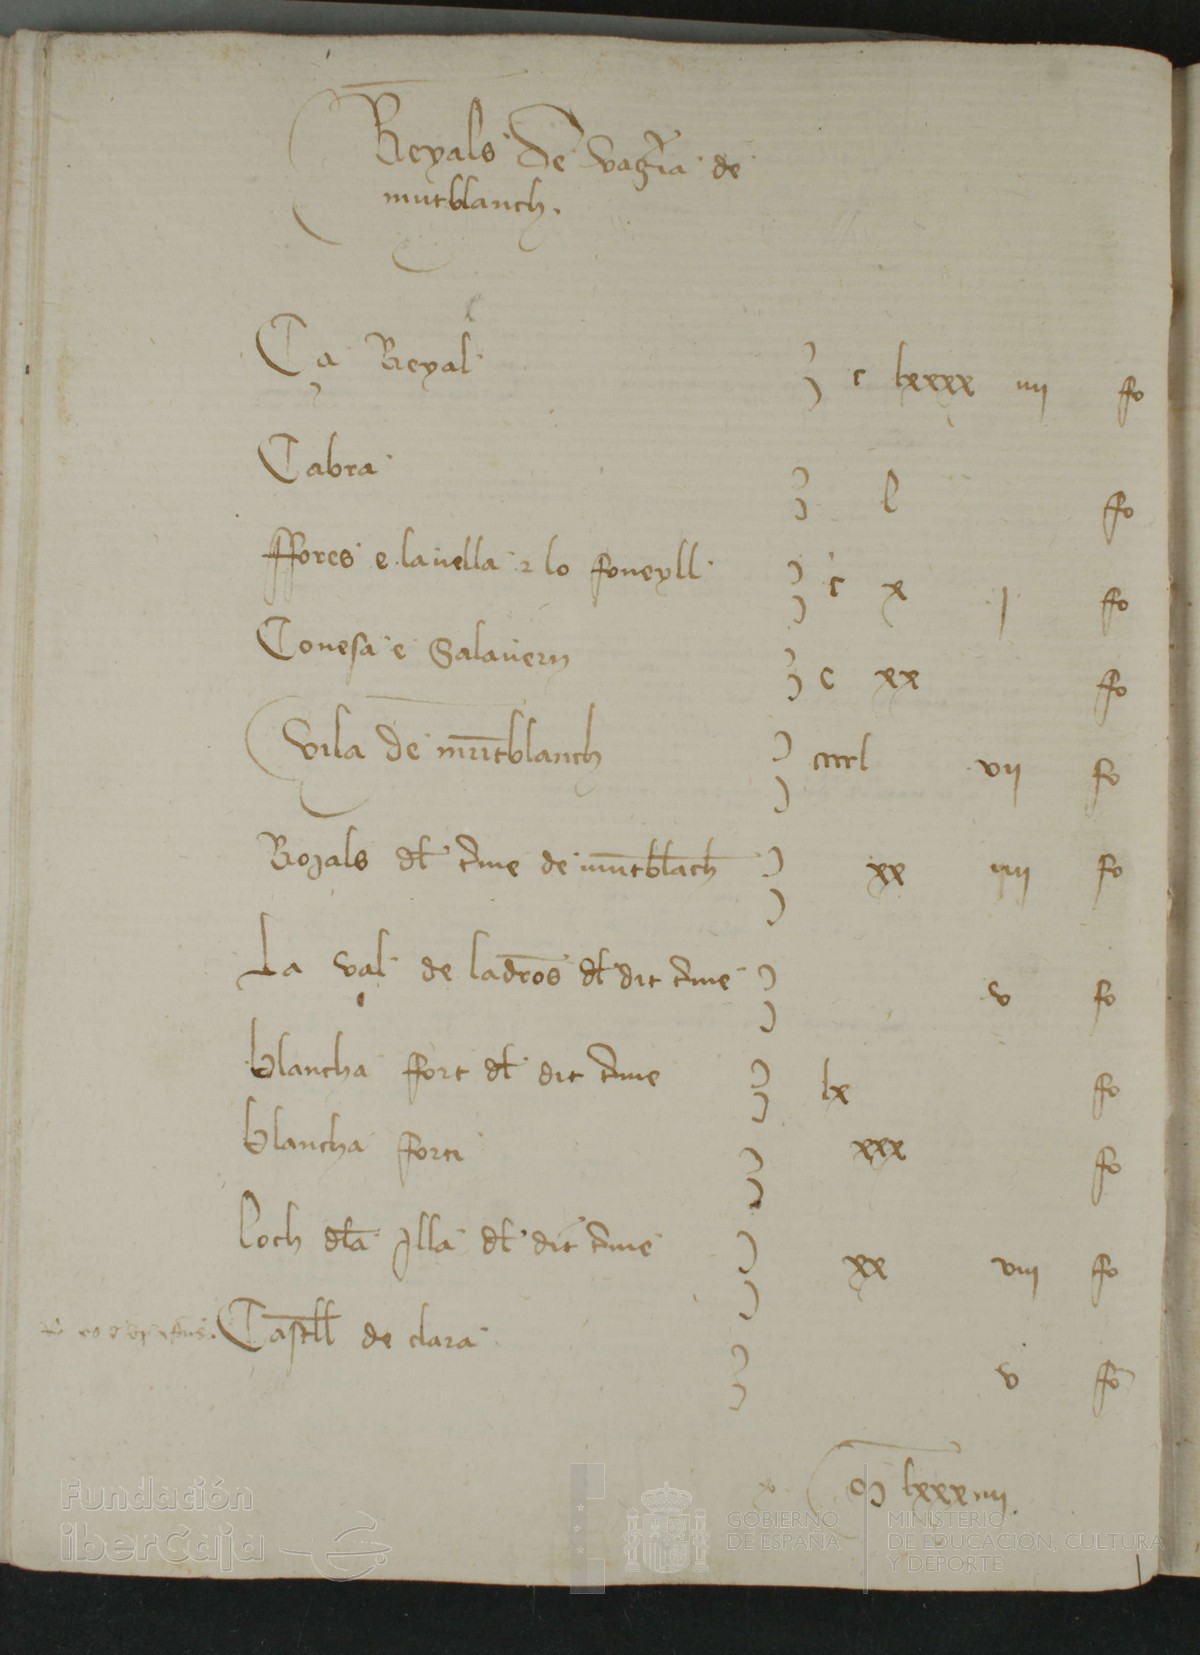 Reyals de vagria de
muntblanch.
Ça Reyal c lxxxx iiii fo
Cabra l fo
ffores e lavella e lo foneyll c x j fo
Conesa e Salavern c xx fo
Vila de muntblanch ccccl vii fo
Rojals dl t'me de muntblach xx iiii fo
La val de ladros dl dit t'me v fo
blancha fort dl dit t'me lx fo
blancha fort xxx fo
loch dla Illa dl dit t'me xx viii fo
Castll de clara v fo
lxxxiiii
Fundación
iberCaja
GOBIERNO
DE ESPAÑA
MINISTERIO
DE EDUCACIÓN, CULTURA
Y DEPORTE